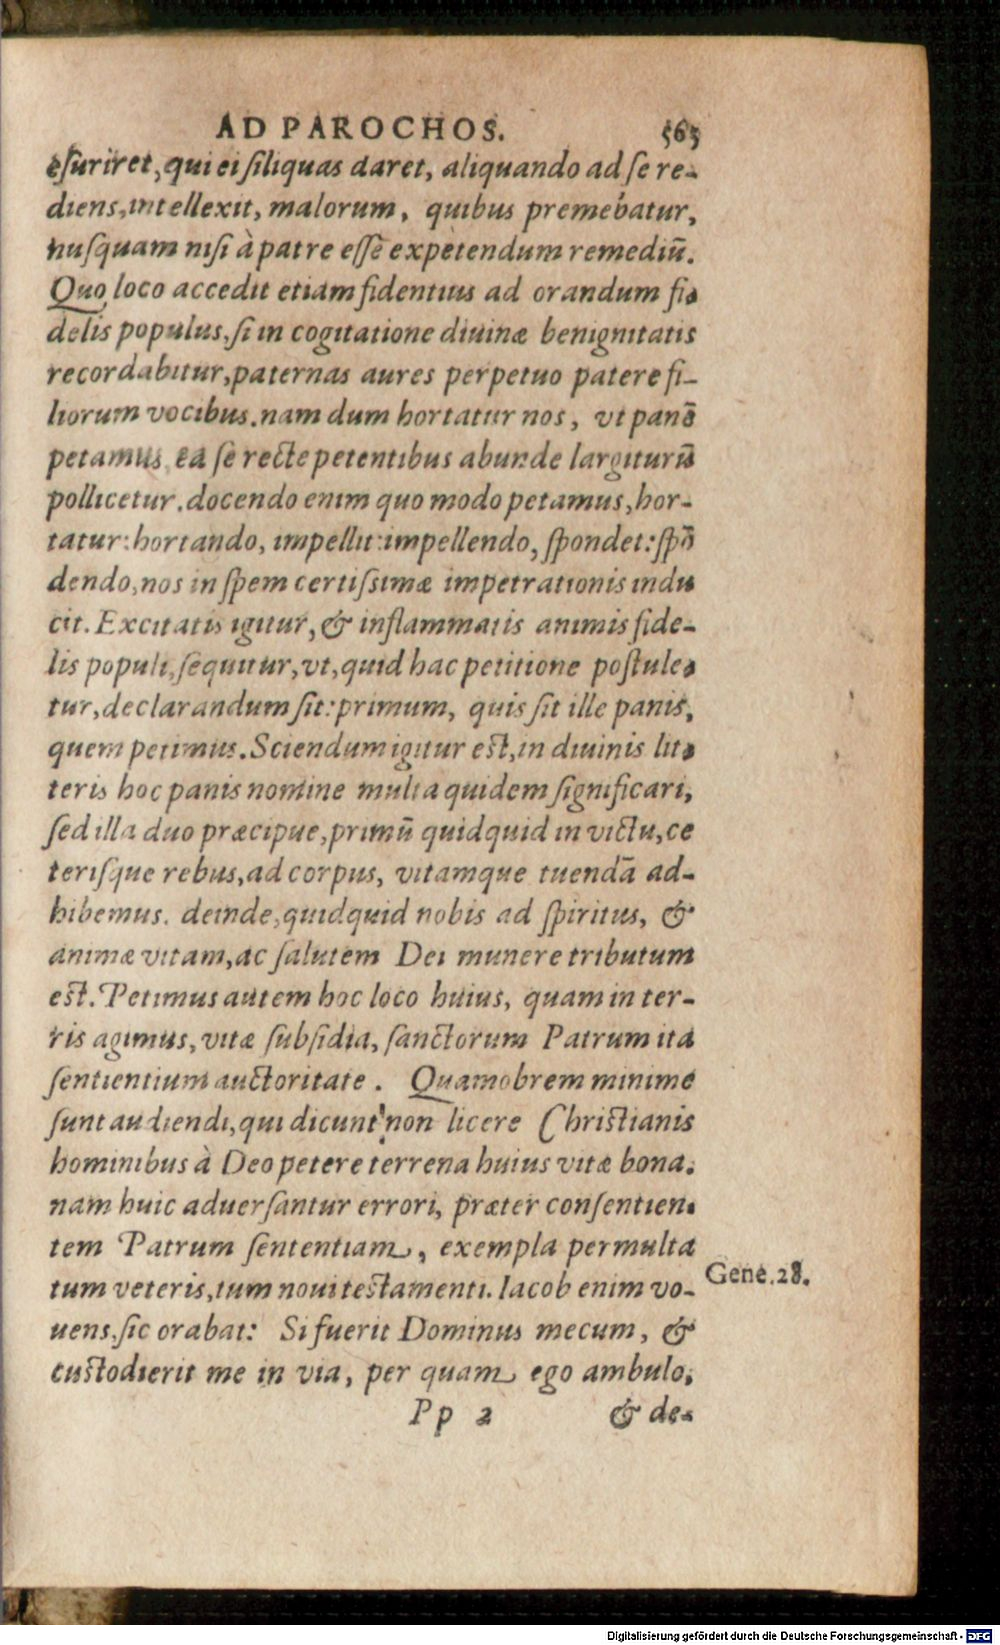 AD PAROCHOS. 565
esuriret, qui ei siliquas daret, aliquando ad se re-
diens, intellexit, malorum, quibus premebatur,
nusquam nisi à patre esse expetendum remediũ.
Quo loco accedit etiam fidentius ad orandum fi-
delis populus, si in cogitatione diuinæ benignitatis
recordabitur, paternas aures perpetuo patere fi-
liorum vocibus. nam dum hortatur nos, vt panẽ
petamus, ea se recte petentibus abunde largiturũ
pollicetur. docendo enim quo modo petamus, hor-
tatur: hortando, impellit: impellendo, spondet: spõ
dendo, nos in spem certissimæ impetrationis indu
cit. Excitatis igitur, & inflammatis animis fide-
lis populi, sequitur, vt, quid hac petitione postule-
tur, declarandum sit: primum, quis sit ille panis,
quem petimus. Sciendum igitur est, in diuinis lit-
teris hoc panis nomine multa quidem significari,
sed illa duo præcipue, primũ quidquid in victu, ce
terisque rebus, ad corpus, vitamque tuendã ad-
hibemus. deinde, quidquid nobis ad spiritus, &
animæ vitam, ac salutem Dei munere tributum
est. Petimus autem hoc loco huius, quam in ter-
ris agimus, vitæ subsidia, sanctorum Patrum ita
sentientium auctoritate. Quamobrem minime
sunt audiendi, qui dicunt non licere Christianis
hominibus à Deo petere terrena huius vitæ bona.
nam huic aduersantur errori, præter consentien-
tem Patrum sententiam, exempla permulta
tum veteris, tum noui testamenti. Iacob enim vo-
Gene. 28.
uens, sic orabat: Si fuerit Dominus mecum, &
custodierit me in via, per quam ego ambulo,
Pp 2 & de-
Digitalisierung gefördert durch die Deutsche Forschungsgemeinschaft - DFG